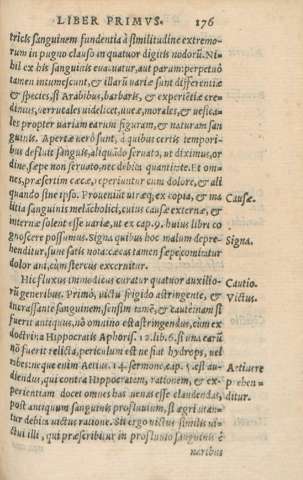 LIBER PRIMVS. 176
tricis sanguinem fundentia à similitudine extremo-
rum in pugno clauso in quatuor digitis nodorū. Ni-
hil ex his sanguinis euacuatur, aut parum: perpetuò
tamen intumescunt, & illarū variæ sunt differentiæ
& species, si Arabibus, barbaris, & experiētiæ cre-
dimus, verrucales videlicet, vueæ, morales, & vesica-
les propter variam earum figuram, & naturam san
guinis. Apertæ verò sunt, à quibus certis tempori-
bus defluit sanguis, aliquādo seruato, ut diximus, or
dine, sæpe non seruato, nec debita quantitate. Et om-
nes, præsertim cæcæ, reperiuntur cum dolore, & ali
quando sine ipso. Proueniūt utræq; ex copia, & ma
litia sanguinis melācholici, cuius causæ externæ, &
internæ solent esse variæ, ut ex cap. 9. huius libri co
gnoscere possumus. Signa quibus hoc malum depre-
henditur, sunt satis nota: cæcas tamen sæpe comitatur
dolor ani, cùm stercus excernitur.
Hic fluxus immodicus curatur quatuor auxilio-
rū generibus. Primò, victu frigido astringente, &
incrassante sanguinem, sensim tamē, & cauté: nam si
fuerit antiquus, nō omnino est astringendus, cùm ex
doctrina Hippocratis Aphoris. 12. lib. 6. si una earū
nō fuerit relicta, periculum est ne fiat hydrops, vel
tabes: neque enim Aetius. 14. sermone, cap. 5. est au-
diendus, qui contra Hippocratem, rationem, & ex-
perientiam docet omnes has uenas esse claudendas,
Post antiquum sanguinis profluuium, si ægri utan-
tur debita victus ratione. Sit ergo victus similis vi-
ctui illi, qui præscribitur in profluuio sanguinis è
naribus
Causæ.
Signa.
Cautio.
Victus.
Aetius re
prehen=
ditur.